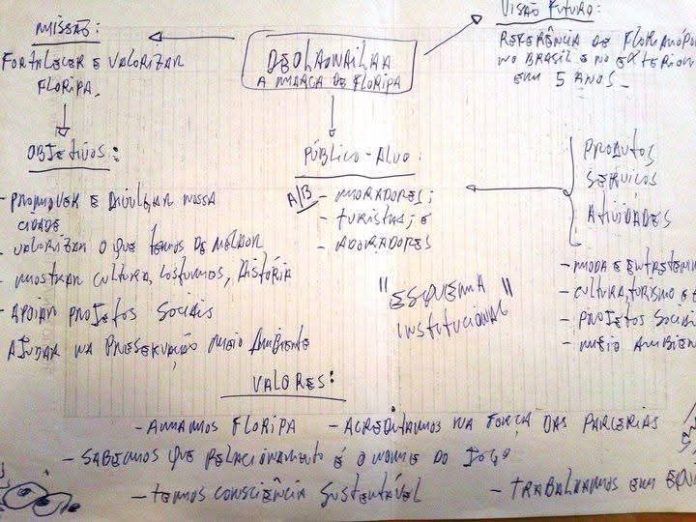 MISSÃO:
FORTALECER E VALORIZAR
FLORIPA.
DEOLHONAILHA
A MARCA DE FLORIPA
VISÃO FUTURO:
REFERÊNCIA DE FLORIANÓP
NO BRASIL E NO EXTERIOR
EM 5 ANOS_
OBJETIVOS:
- PROMOVER E DIVULGAR NOSSA
CIDADE
- VALORIZAR O QUE TEMOS DE MELHOR
- MOSTRAR CULTURA, COSTUMES, HISTÓRIA
- APOIAR PROJETOS SOCIAIS
AJUDAR NA PRESERVAÇÃO MEIO AMBIENTE
PÚBLICO-ALVO:
A/B - MORADORES;
- TURISTAS; E
- ADORADORES
PRODUTOS
SERVIÇOS
ATIVIDADES
- MODA E ENTRETENI
- CULTURA, TURISMO E
- PROJETOS SOCIAI
- MEIO AMBIEN
"ESQUEMA
INSTITUCIONAL"
VALORES:
- AMAMOS FLORIPA - ACREDITAMOS NA FORÇA DAS PARCERIAS
- SABEMOS QUE RELACIONAMENTO É O NOME DO JOGO
- TEMOS CONSCIÊNCIA SUSTENTÁVEL - TRABALHAMOS EM EQUI